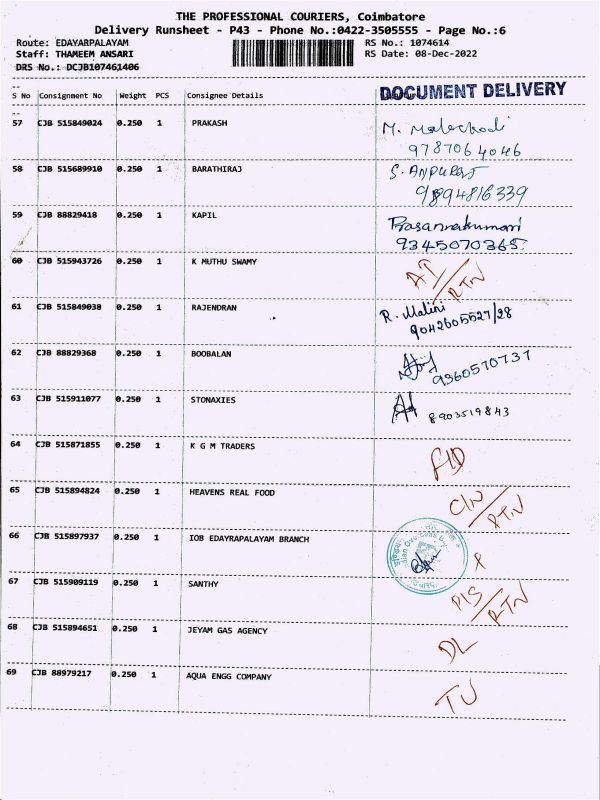 THE PROFESSIONAL COURIERS, Coimbatore
Delivery Runsheet - P43 - Phone No.:0422-3505555 - Page No.:6
Route: EDAYARPALAYAM RS No.: 1074614
Staff: THAMEEM ANSARI RS Date: 08-Dec-2022
DRS No.: DCJB107461406
DOCUMENT DELIVERY
S No Consignment No Weight PCS Consignee Details
57 CJB 515849024 0.250 1 PRAKASH
9787064046
58 CJB 515689910 0.250 1 BARATHIRAJ
9894816339
59 CJB 88829418 0.250 1 KAPIL Prasannakumari
9345070365.
60 CJB 515943726 0.250 1 K MUTHU SWAMY
RTN
61 CJB 515849038 0.250 1 RAJENDRAN R. Malini
9042605527/28
62 CJB 88829368 0.250 1 BOOBALAN
9360570737
63 CJB 515911077 0.250 1 STONAXIES
8903519843
64 CJB 515871855 0.250 1 K G M TRADERS
65 CJB 515894824 0.250 1 HEAVENS REAL FOOD C/N
RTN
66 CJB 515897937 0.250 1 IOB EDAYRAPALAYAM BRANCH
67 CJB 515909119 0.250 1 SANTHY P/S
RTN
68 CJB 515894651 0.250 1 JEYAM GAS AGENCY DL
69 CJB 88979217 0.250 1 AQUA ENGG COMPANY TU